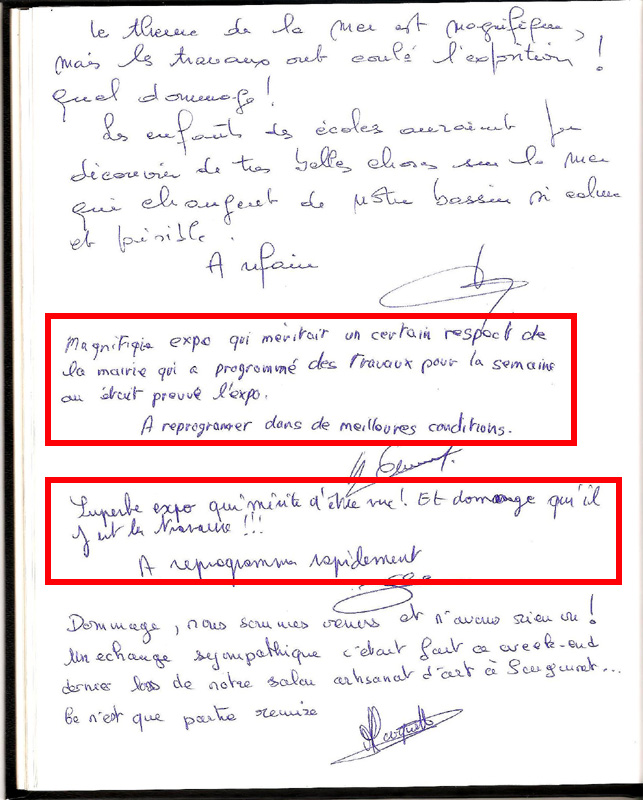 Le theme de la mer est magnifique,
mais les travaux ont coulé l'exposition !
quel dommage !
Les enfants des écoles auraient pu
découvrir de tres belles choses sur la mer
qui changent de notre bassin si calme
et paisible.
A refaire
Magnifique expo qui méritait un certain respect de
la mairie qui a programmé des travaux pour la semaine
ou était prevue l'expo.
A reprogrammer dans de meilleures conditions.
Superbe expo qui mérite d'être vue ! Et dommage qu'il
y est les travaux !!!
A reprogramma rapidement
Dommage, nous sommes venus et n'avons rien vu !
Un echange sympathique c'était fait ce week-end
dernier lors de notre salon artisanat d'art à
Ce n'est que partie remise